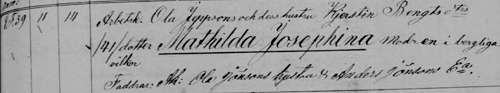 6.39 11 14 Arbetsk: Ola Jeppsons och dess hustru Kjerstin Bengts Dtr
/41/ dotter Mathilda Josephina Modren i borgliga
vilkor
Faddrar: Åb: Ola Jönsons hustru & Anders Jönsons Ea.